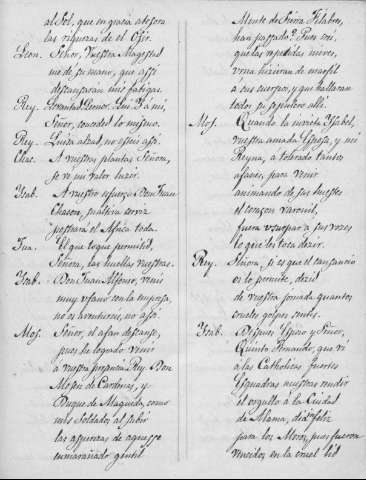 al Sol, que en gracia atesora
los rigores de el Ossir.
Leon. Señor, Vuestra Magestad
me de su mano, que assi
descansaran mis fatigas.
Rey. Levantad Leonor.
Señor, conceded lo mismo.
Rey. Luisa alzad, no esteis assi.
Chac. A vuestras plantas Señora,
se ve mi valor lucir.
Ysab. A vuestro esfuerzo Don Juan
Chacon, su altiva cerviz
postrará el Africa toda.
Jua. El que toque permitid,
Señora, las huellas vuestras.
Ysab. Don Juan Alfonso, venis
muy ufano con la empresa,
no os aventureis, no assi.
Mos. Señor, el afan descanse,
pues he logrado venir
a vuestra presencia Rey. Don
Mosen de Cardenas, y
Duque de Maqueda, como
mis Soldados al subir
las asperezas de aquesse
enmarañado gentil
Monte de Sierra Filabres,
han passado? Pues oi,
que las repetidas nieves,
urna hizieron de marfil
a sus cuerpos, y que hallaran
todos su sepulcro alli.
Mos. Quando la invicta Ysabel,
vuestra amada Esposa, y mi
Reyna, a tolerado tantos
afanes, para venir
animando de sus huestes
el corazon varonil,
fuera usurpar a sus vozes
lo que les toca dezir.
Rey. Señora, si es que el cansancio
os lo permite, dezid
de vuestra jornada quantos
crueles golpes
Ysab. Despues Esposo y Señor,
Quinto Fernando, que vi
a las Catholicas fuertes
Esquadras nuestras rendir
el orgullo á la Ciudad
de Alama, dia feliz
para los Moros, pues fueron
vencidos en la cruel lid